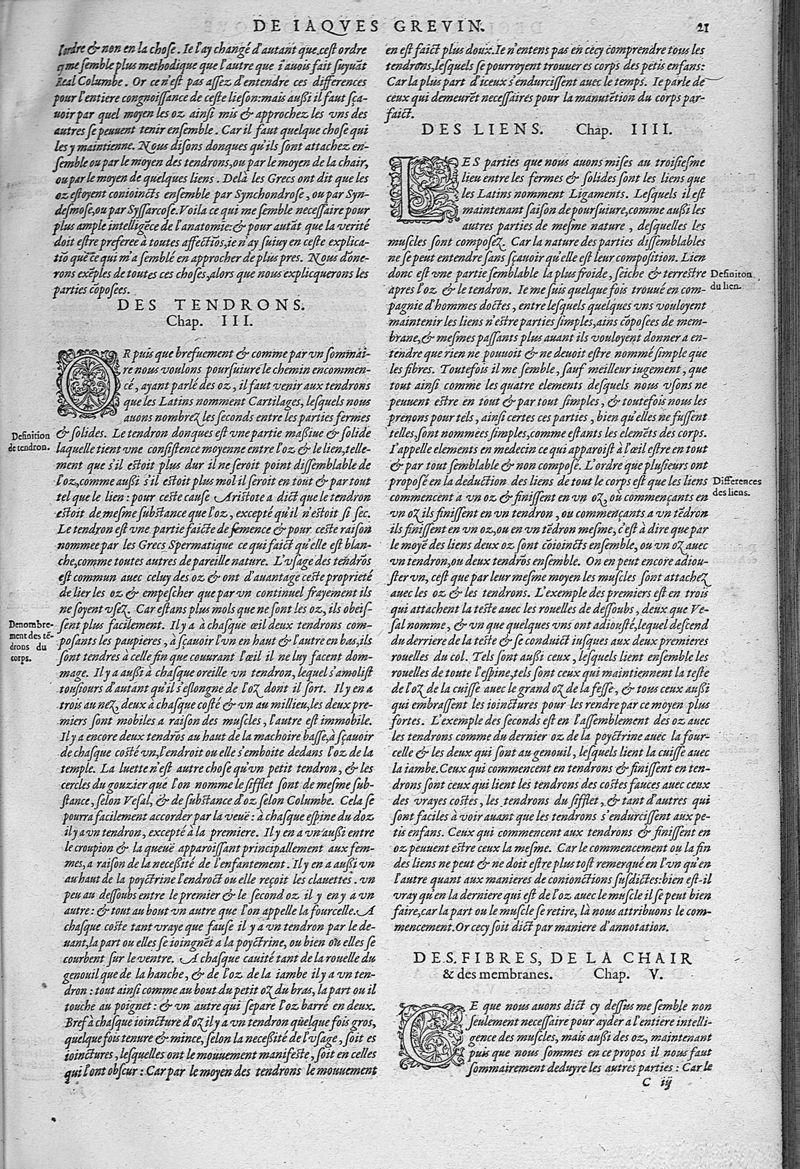 DE IAQVES GREVIN. 21
l'ordre & non en la chose. Ie l'ay changé d'autant que cest ordre
me semble plus methodique que l'autre que i'auois fait suyuāt
Real Columbe. Or ce n'est pas assez d'entendre ces differences
pour l'entiere congnoissance de ceste lieson: mais aussi il faut sça-
uoir par quel moyen les oz ainsi mis & approchez les vns des
autres se peuuent tenir ensemble. Car il faut quelque chose qui
les y maintienne. Nous disons donques qu'ils sont attachez en-
semble ou par le moyen des tendrons, ou par le moyen de la chair,
ou par le moyen de quelques liens. Delà les Grecs ont dit que les
oz estoyent conioincts ensemble par Synchondrose, ou par Syn-
desmose, ou par Syssarcose. Voila ce qui me semble necessaire pour
plus ample intelligēce de l'anatomie: & pour autāt que la verité
doit estre preferee à toutes affectiōs, ie n'ay suiuy en ceste explica-
tiō que ce qui m'a semblé en approcher de plus pres. Nous dōne-
rons exēples de toutes ces choses, alors que nous explicquerons les
parties cōposees.
DES TENDRONS.
Chap. III.
OR puis que brefuement & comme par vn sommai-
re nous voulons poursuiure le chemin encommen-
cé, ayant parlé des oz, il faut venir aux tendrons
que les Latins nomment Cartilages, lesquels nous
auons nombrez les seconds entre les parties fermes
Definition
de tendron.
& solides. Le tendron donques est vne partie massiue & solide
laquelle tient vne consistence moyenne entre l'oz & le lien, telle-
ment que s'il estoit plus dur il ne seroit point dissemblable de
l'oz, comme aussi s'il estoit plus mol il seroit en tout & par tout
tel que le lien: pour ceste cause Aristote a dict que le tendron
estoit de mesme substance que l'oz, excepté qu'il n'estoit si sec.
Le tendron est vne partie faicte de semence & pour ceste raison
nommee par les Grecs Spermatique ce qui faict qu'elle est blan-
che, comme toutes autres de pareille nature. L'vsage des tendrōs
est commun auec celuy des oz & ont d'auantage ceste proprieté
de lier les oz & empescher que par vn continuel frayement ils
ne soyent vsez. Car estans plus mols que ne sont les oz, ils obeis-
Denombre-
ment des tē-
drons du
corps.
sent plus facilement. Il y a à chasque œil deux tendrons com-
posants les paupieres, à sçauoir l'vn en haut & l'autre en bas, ils
sont tendres à celle fin que couurant l'œil il ne luy facent dom-
mage. Il y a aussi à chasque oreille vn tendron, lequel s'amolist
tousiours d'autant qu'il s'eslongne de l'oz dont il sort. Il y en a
trois au nez, deux à chasque costé & vn au millieu, les deux pre-
miers sont mobiles a raison des muscles, l'autre est immobile.
Il y a encore deux tendrōs au haut de la machoire basse, à sçauoir
de chasque costé vn, l'endroit ou elle s'emboite dedans l'oz de la
temple. La luette n'est autre chose qu'vn petit tendron, & les
cercles du gouzier que l'on nomme le sifflet sont de mesme sub-
stance, selon Vesal, & de substance d'oz selon Columbe. Cela se
pourra facilement accorder par la veuë: à chasque espine du doz
il y a vn tendron, excepté à la premiere. Il y en a vn aussi entre
le croupion & la queuë apparoissant principallement aux fem-
mes, a raison de la necessité de l'enfantement. Il y en a aussi vn
au haut de la poyctrine l'endroct ou elle reçoit les clauettes. vn
peu au dessoubs entre le premier & le second oz il y en y a vn
autre: & tout au bout vn autre que l'on appelle la fourcelle. A
chasque coste tant vraye que fause il y a vn tendron par le de-
uant, la part ou elles se ioingnēt a la poyctrine, ou bien ou elles se
courbent sur le ventre. A chasque cauité tant de la rouelle du
genouil que de la hanche, & de l'oz de la iambe il y a vn ten-
dron: tout ainsi comme au bout du petit oz du bras, la part ou il
touche au poignet: & vn autre qui separe l'oz barré en deux.
Bref à chasque ioincture d'oz il y a vn tendron quelque fois gros,
quelque fou tenure & mince, selon la necessité de l'vsage, soit es
ioinctures, lesquelles ont le mouuement manifeste, soit en celles
qui l'ont obscur: Car par le moyen des tendrons le mouuement
en est faict plus doux. Ie n'entens pas en cecy comprendre tous les
tendrons, lesquels se pourroyent trouuer es corps des petis enfans:
Car la plus part d'iceux s'endurcissent auec le temps. Ie parle de
ceux qui demeurēt necessaires pour la manutētion du corps par-
faict.
DES LIENS. Chap. IIII.
LES parties que nous auons mises au troisiesme
lieu entre les fermes & solides sont les liens que
les Latins nomment Ligaments. Lesquels il est
maintenant saison de poursuiure, comme aussi les
autres parties de mesme nature, desquelles les
muscles sont composez. Car la nature des parties dissemblables
ne se peut entendre sans sçauoir qu'elle est leur composition. Lien
donc est vne partie semblable la plus froide, seiche & terrestre
Definiton
du lien.
apres l'oz & le tendron. Ie me suis quelque fois trouué en com-
pagnie d'hommes doctes, entre lesquels quelques vns vouloyent
maintenir les liens n'estre parties simples, ains cōposees de mem-
brane, & mesmes passants plus auant ils vouloyent donner a en-
tendre que rien ne pouuoit & ne deuoit estre nommé simple que
les fibres. Toutefois il me semble, sauf meilleur iugement, que
tout ainsi comme les quatre elements desquels nous vsons ne
peuuent estre en tout & par tout simples, & toutefois nous les
prenons pour tels, ainsi certes ces parties, bien qu'elles ne fussent
telles, sont nommees simples, comme estants les elemēts des corps.
I'appelle elements en medecin ce qui apparoist à l'œil estre en tout
& par tout semblable & non composé. L'ordre que plusieurs ont
Differences
des liens.
proposé en la deduction des liens de tout le corps est que les liens
commencent a vn oz & finissent en vn oz, où commençants en
vn oz ils finissent en vn tendron, ou commençants a vn tēdron
ils finissent en vn oz, ou en vn tēdron mesme, c'est à dire que par
le moyē des liens deux oz sont cōioincts ensemble, ou vn oz auec
vn tendron, ou deux tendrōs ensemble. On en peut encore adiou-
ster vn, cest que par leur mesme moyen les muscles sont attachez
auec les oz & les tendrons. L'exemple des premiers est en trois
qui attachent la teste auec les rouelles de dessoubs, deux que Ve-
sal nomme, & vn que quelques vns ont adiousté, lequel descend
du derriere de la teste & se conduict iusques aux deux premieres
rouelles du col. Tels sont aussi ceux, lesquels lient ensemble les
rouelles de toute l'espine, tels sont ceux qui maintiennent la teste
de l'oz de la cuisse auec le grand oz de la fesse, & tous ceux aussi
qui embrassent les ioinctures pour les rendre par ce moyen plus
fortes. L'exemple des seconds est en l'assemblement des oz auec
les tendrons comme du dernier oz de la poyctrine auec la four-
celle & les deux qui sont au genouil, lesquels lient la cuisse auec
la iambe. Ceux qui commencent en tendrons & finissent en ten-
drons sont ceux qui lient les tendrons des costes fauces auec ceux
des vrayes costes, les tendrons du sifflet, & tant d'autres qui
sont faciles à voir auant que les tendrons s'endurcissent aux pe-
tis enfans. Ceux qui commencent aux tendrons & finissent en
oz peuuent estre ceux la mesme. Car le commencement ou la fin
des liens ne peut & ne doit estre plus tost remerqué en l'vn qu'en
l'autre quant aux manieres de conionctions susdictes: bien est-il
vray qu'en la derniere qui est de l'oz auec le muscle il se peut bien
faire, car la part ou le muscle se retire, là nous attribuons le com-
mencement. Or cecy soit dict par maniere d'annotation.
DES FIBRES, DE LA CHAIR
& des membranes. Chap. V.
CE que nous auons dict cy dessus me semble non
seulement necessaire pour ayder a l'entiere intelli-
gence des muscles, mais aussi des oz, maintenant
puis que nous sommes en ce propos il nous faut
sommairement deduyre les autres parties: Car le
C iij